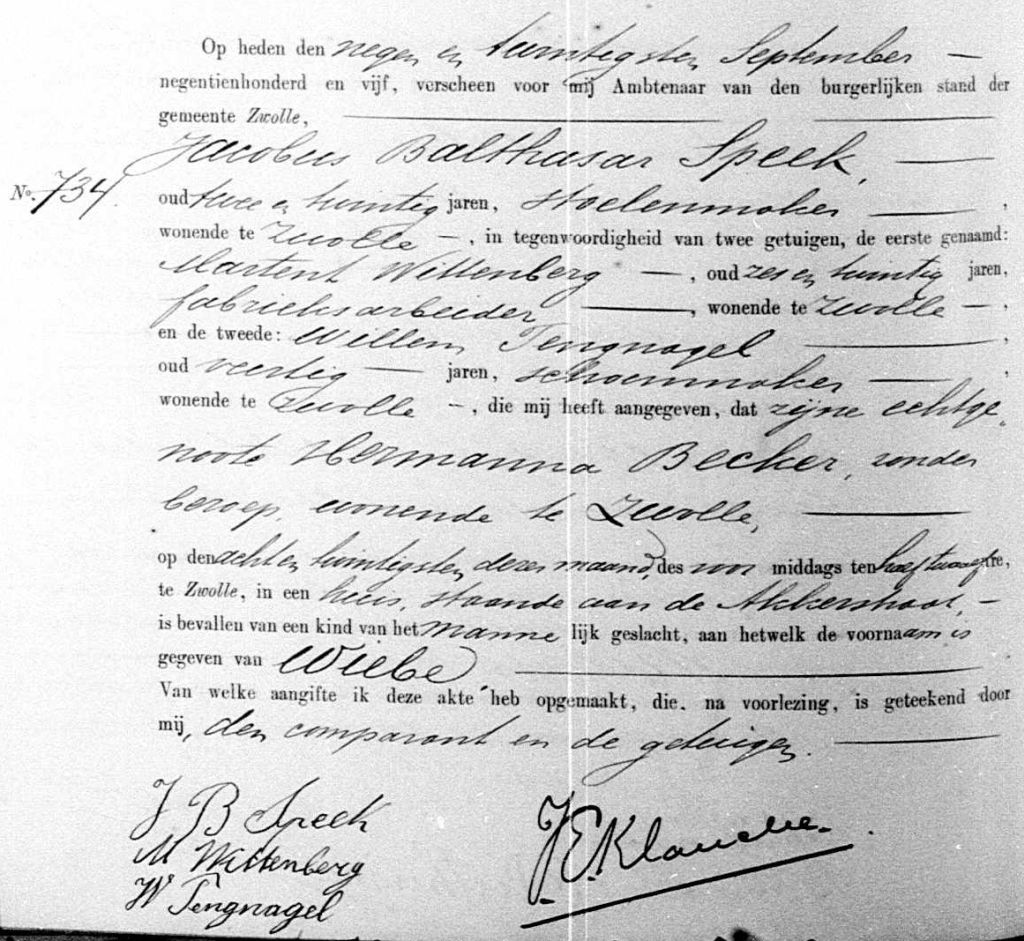 Op heden den negen en twintigsten September —
negentienhonderd en vijf, verscheen voor mij Ambtenaar van den burgerlijken stand der
gemeente Zwolle,
Jacobus Balthasar Speek,
No. 734.
oud twee en twintig jaren, stoelenmaker — ,
wonende te Zwolle —, in tegenwoordigheid van twee getuigen, de eerste genaamd:
Martent Wittenberg —, oud zes en twintig jaren,
fabrieksarbeider —, wonende te Zwolle —,
en de tweede: Willem Tengnagel — ,
oud veertig — jaren, schoenmaker — ,
wonende te Zwolle —, die mij heeft aangegeven, dat zijne echtge-
noote Hermanna Becker, zonder
beroep, wonende te Zwolle, —
op den acht en twintigsten dezer maand, des voor middags ten half twaalf ure,
te Zwolle, in een huis, staande aan de Akkerstraat, —
is bevallen van een kind van het manne lijk geslacht, aan hetwelk de voornaam is
gegeven van Wiebe —
Van welke aangifte ik deze akte heb opgemaakt, die, na voorlezing, is geteekend door
mij, den comparant en de getuigen. —
J B Speek
M Wittenberg
W Tengnagel
J.E.